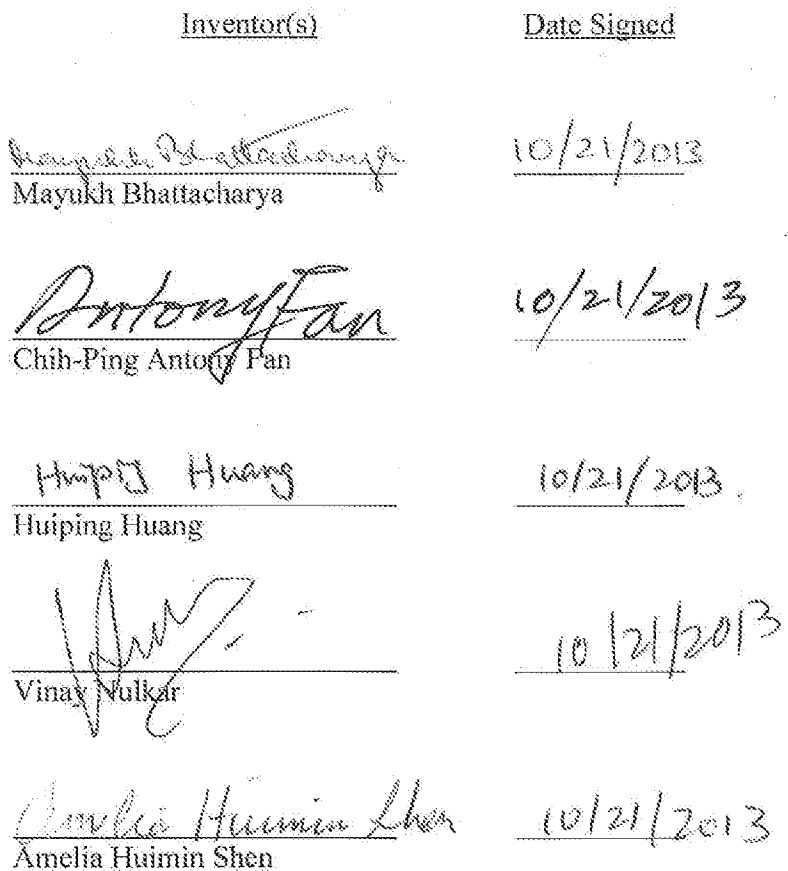 Inventor(s) Date Signed
Mayukh Bhattacharya 10/21/2013
Mayukh Bhattacharya
Antony Fan 10/21/2013
Chih-Ping Antony Fan
Huiping Huang 10/21/2013
Huiping Huang
10/21/2013
Vinay Nulkar
Amelia Huimin Shen 10/21/2013
Amelia Huimin Shen